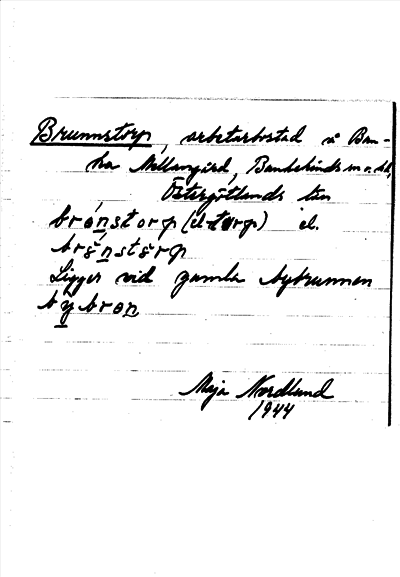 Brunnstorp, arbetarbostad å Ban-
ka Mellangård, Bankekinds sn o. hd,
Östergötlands län
brónstorp (el -torp) el.
brs̀nstsrp
Ligger vid gamla bybrunnen
bybron
Maja Nordlund
1944